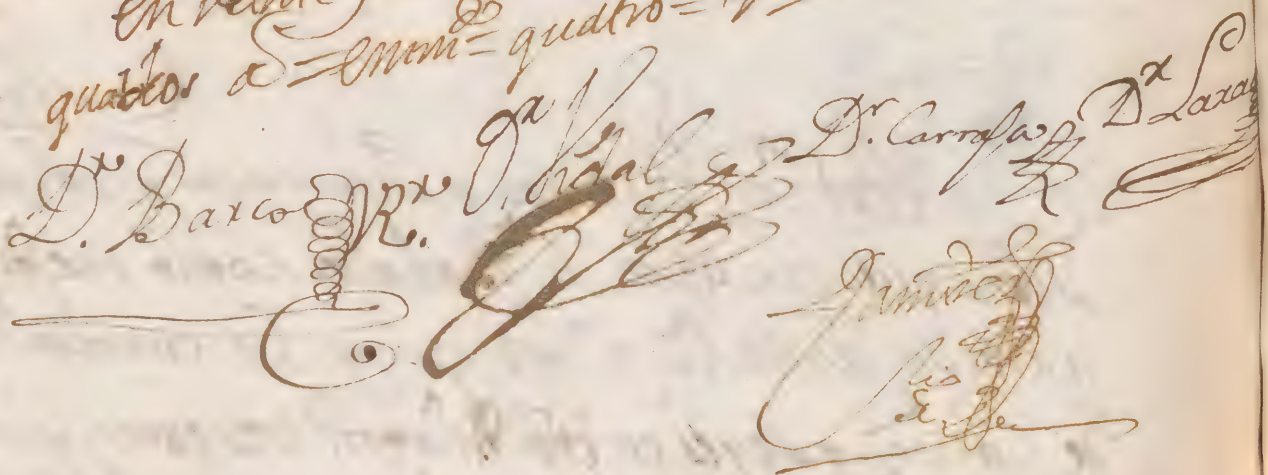 en veinte
quatros a = enmdo = quatro =
Dr. Barco Rr. Dr. Vidal Dr. Carrasco Dr. Lara
Ramirez